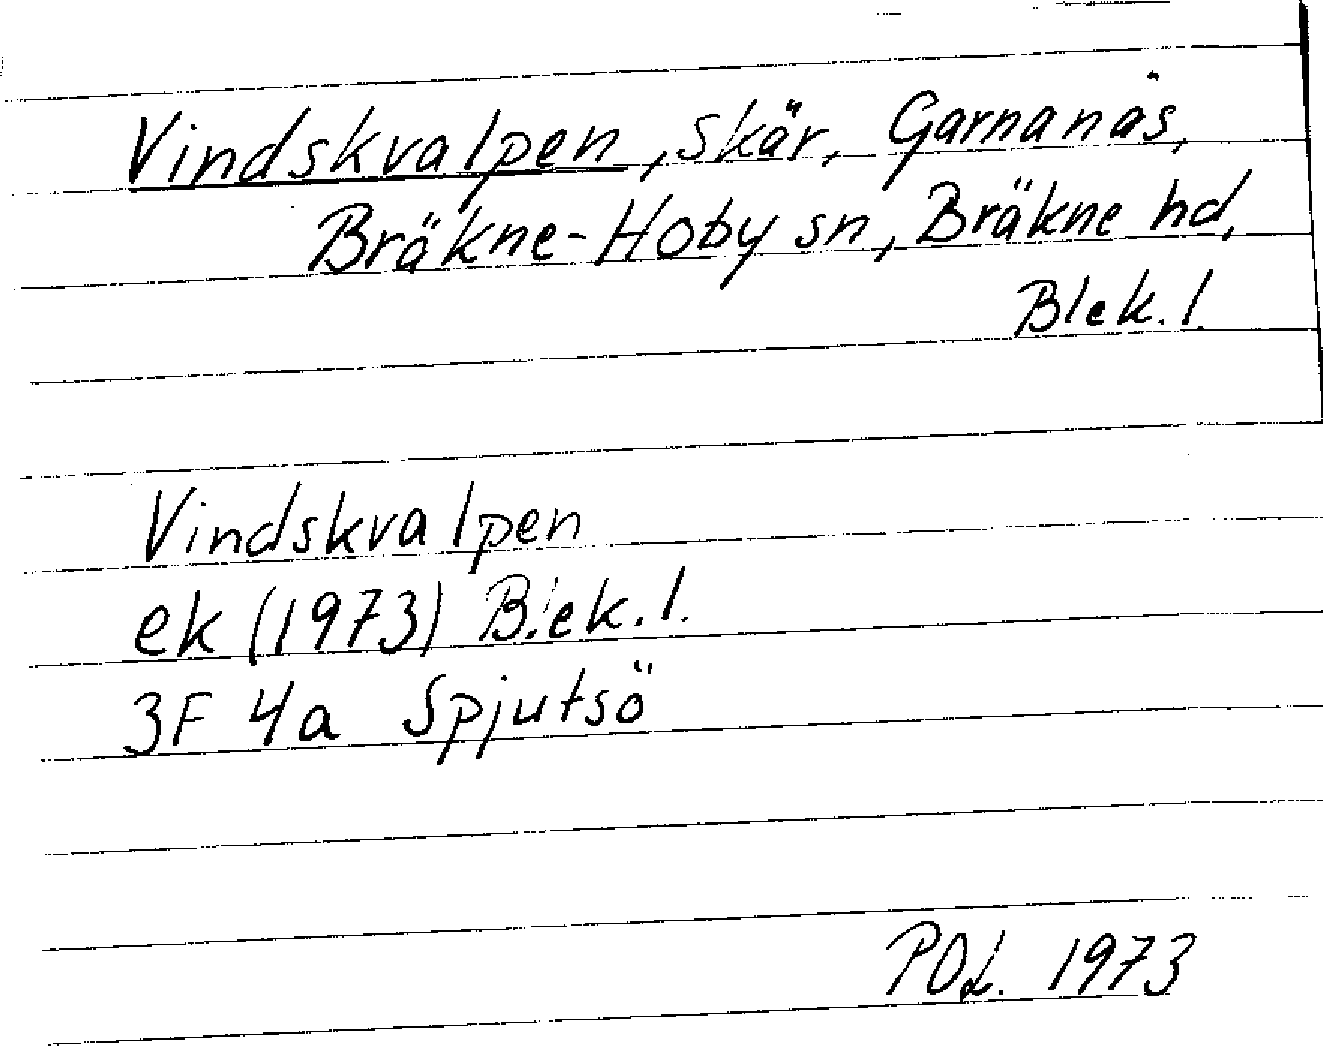 Vindskvalpen, skär, Garnanäs,
Bräkne-Hoby sn, Bräkne hd,
Blek. l.
Vindskvalpen
ek (1973) Blek. l.
3F 4a Spjutsö
POL. 1973